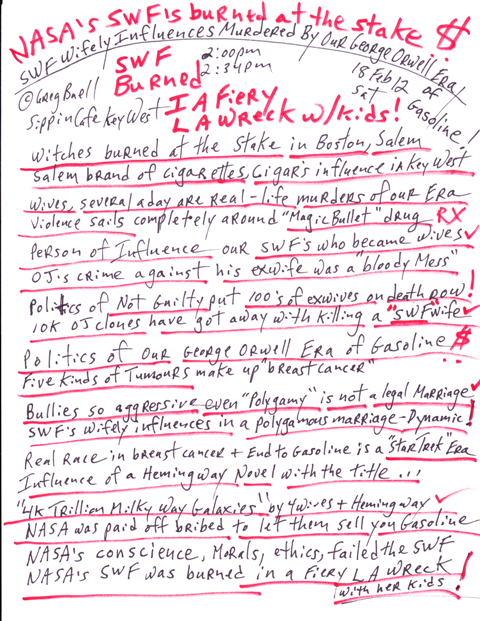 NASA's SWF is burned at the stake $
SWF Wifely Influences Murdered By Our George Orwell Era
of Gasoline!
SWF 2:00pm
Burned 2:34pm
18 Feb 12
Sat
© Greg Buell
Sippin Cafe Key West
I A Fiery
L A Wreck w/kids!
Witches burned at the stake in Boston, Salem
Salem brand of cigarettes, Cigar's influence in Key West
Wives, several a day are real-life murders of our Era
Violence sails completely around "Magic Bullet" drug RX
Person of Influence our SWF's who became wives ✓
OJ's crime against his exwife was a "bloody Mess"
Politics of Not Guilty put 100's of exwives on death row!
10K OJ clones have got away with killing a "SWF" Wife ✓
Politics of Our George Orwell Era of Gasoline $
Five kinds of Tumours make up "breast cancer"
Bullies so aggressive even "Polygamy" is not a legal Marriage ✓
SWF's wifely influences in a polygamous marriage-Dynamic!
Real Race in breast cancer + End to Gasoline is a "Star Trek Era
Influence of a Hemingway Novel with the title...
"4k Trillion Milky Way Galaxies" by 4 wives + Hemingway ✓
NASA was paid off bribed to let them sell you Gasoline
NASA's conscience, Morals, ethics, failed the SWF
NASA's SWF was burned in a fiery L A Wreck
with her kids!